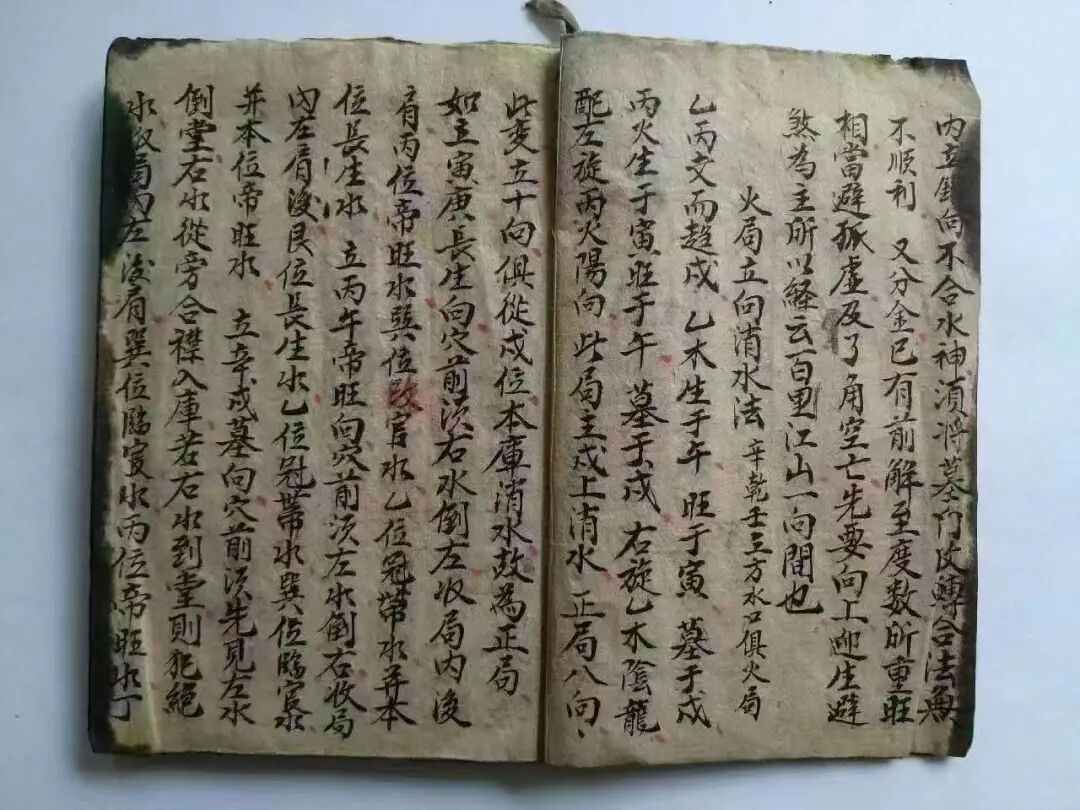 内立銷向不合水神須將墓門改轉合法無
不順利　又分金已有前解至度數所重旺
相當避孤虛及了角空亡先要向上迎生避
煞為主所以経云百里江山一向間也
火局立向消水法　辛乾壬三方水口俱火局
乙丙交而趋戍　乙木生于午　旺于寅　墓于戍
丙火生于寅旺于午　墓于戍　右旋乙木陰龍
配左旋丙火陽向　此局主戍上消水　正局八向、
此変立十向俱從戍位本庫消水故為正局
如立寅庚長生向穴前須右水倒左收局内後
肩丙位帝旺水巽位官水乙位冠帶水并本
位長生水　立丙午帝旺向穴前須左水倒右收局
内左肩後艮位長生水乙位冠帶水巽位臨官水
并本位帝旺水　立辛戍墓向穴前須先見左水
倒堂右水從旁合襟入庫若右水到堂則犯絕
水收局内左後肩巽位臨官水丙位帝旺水丁